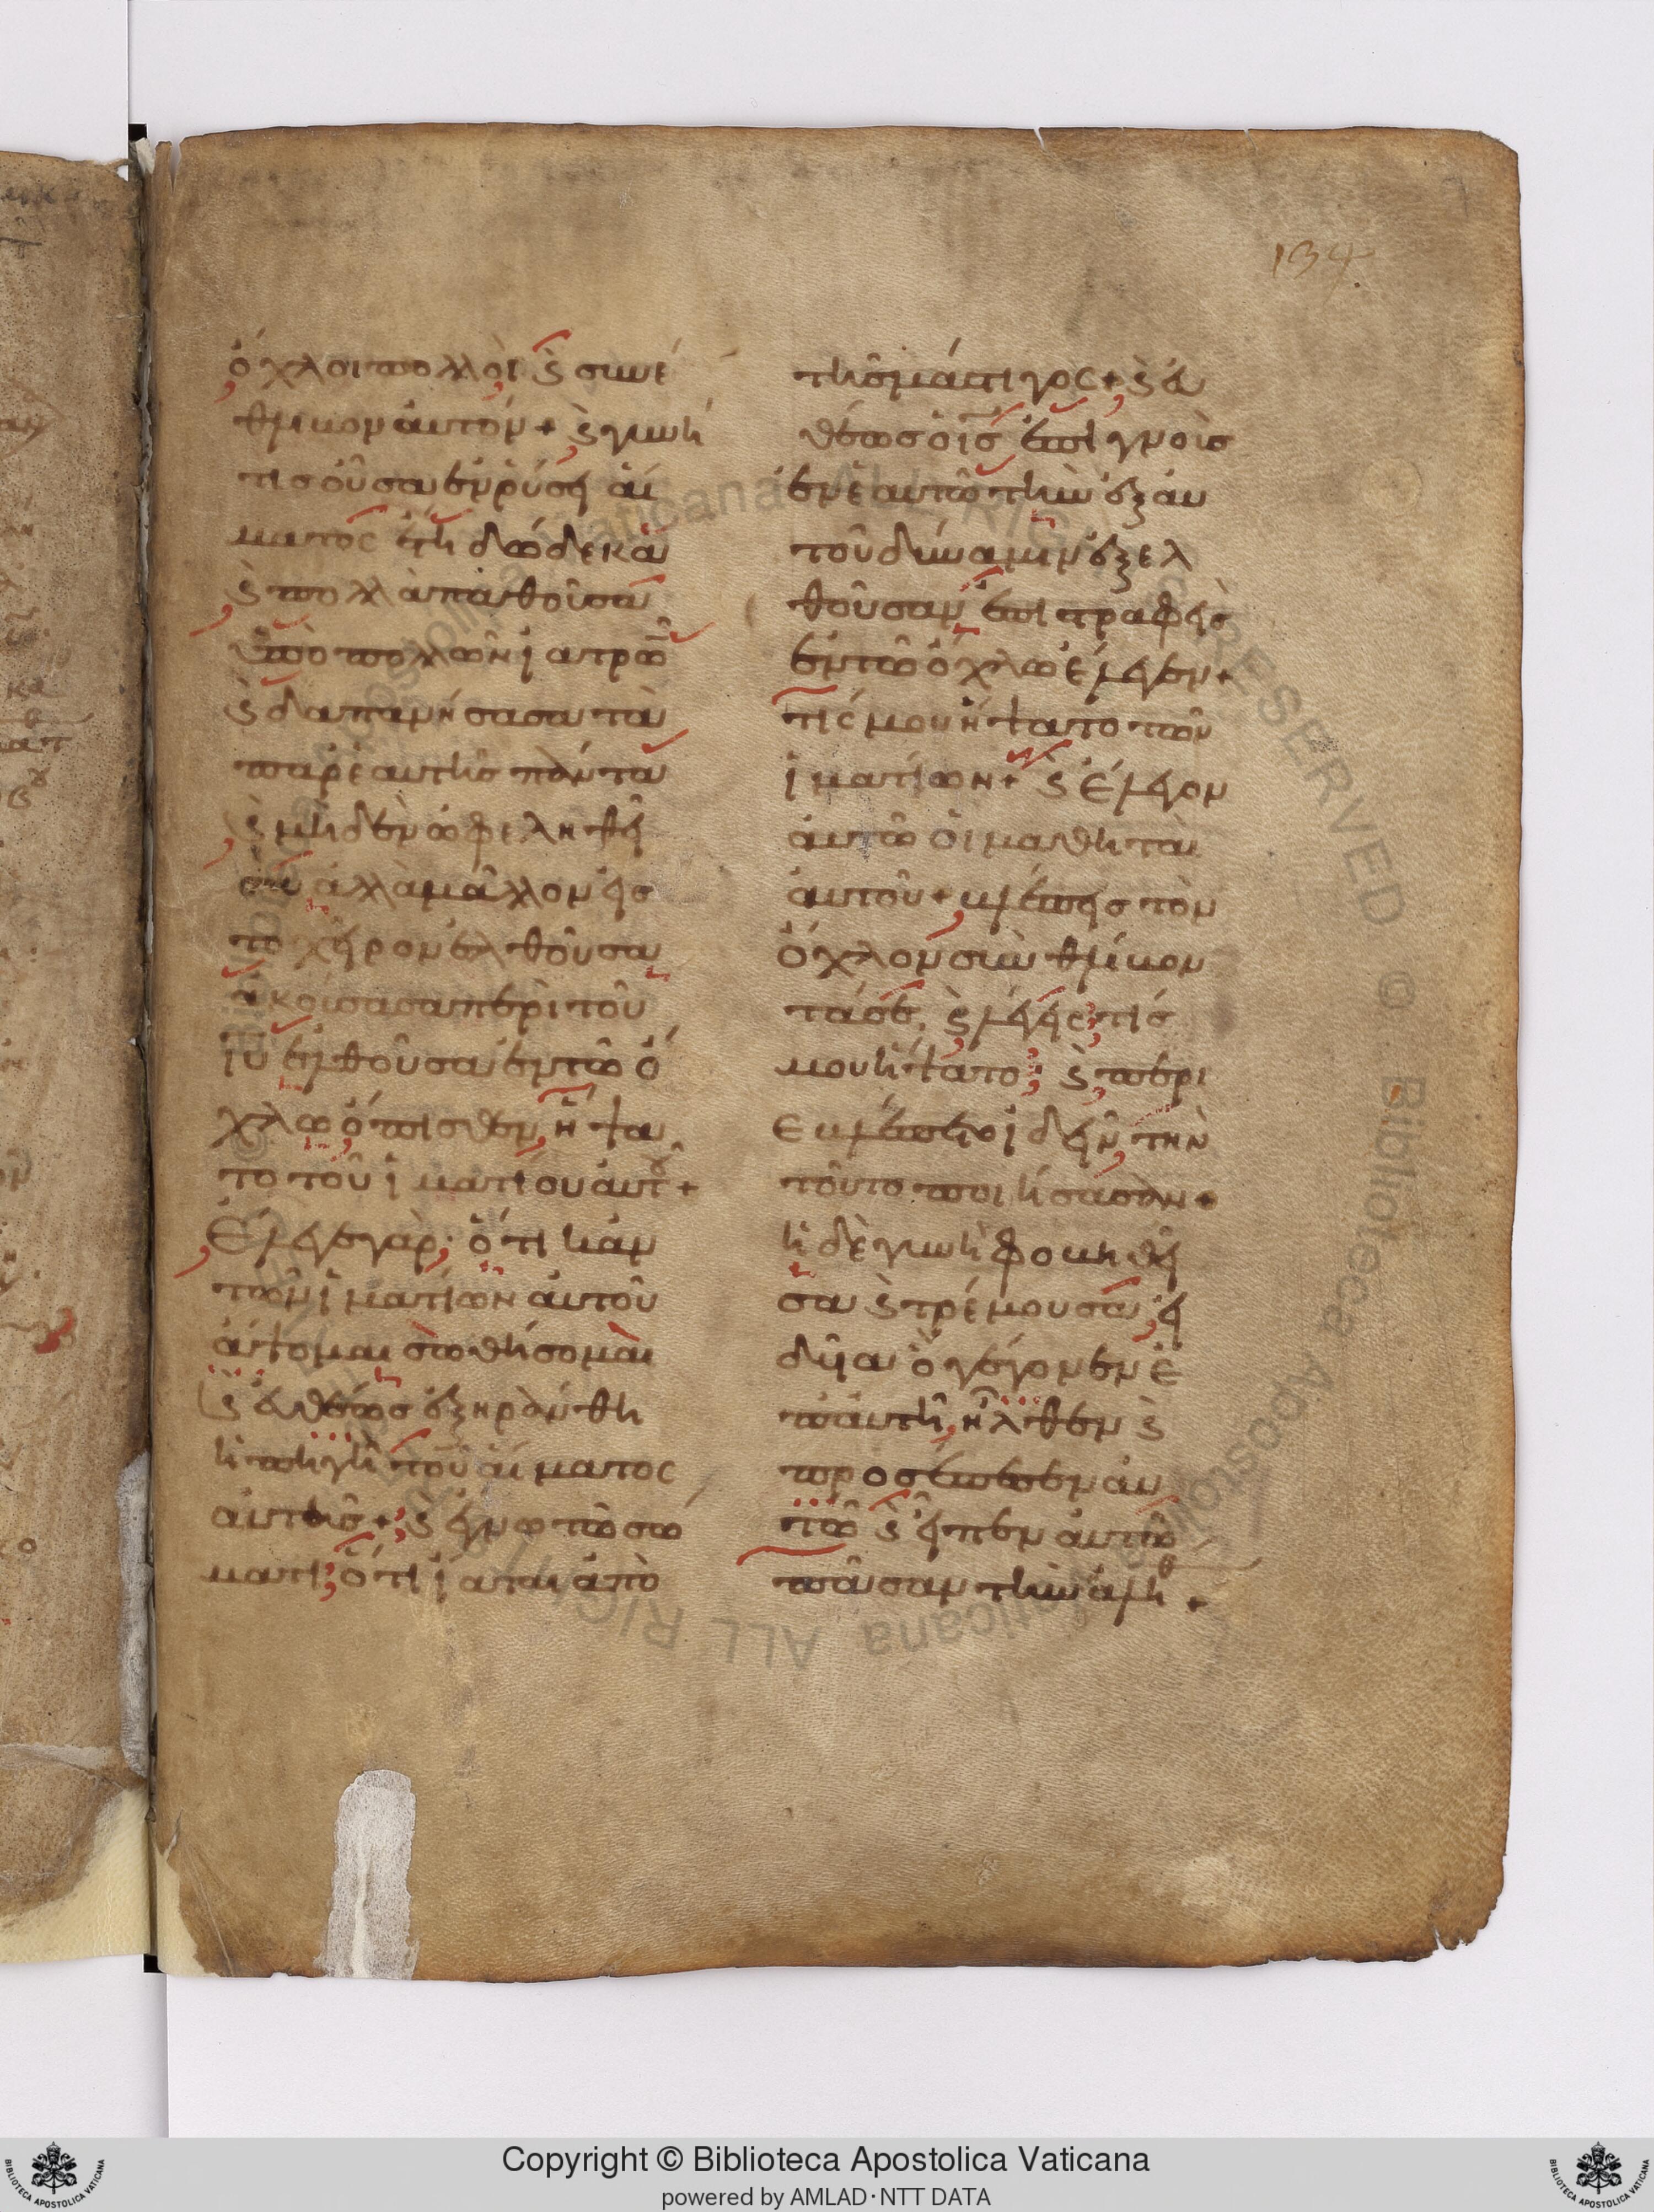 134
ὄχλοι πολλοὶ ϗ συνέ
θλιβον αὐτόν + ϗ γυνή
τισ οὖσα ἐν ρύσει αἵ
ματος ἔτη δώδεκα
ϗ πολλὰ παθοῦσα
ὑπὸ πολλῶν ἰατρῶ̅
ϗ δαπανήσασα τὰ
παρ' ἑαυτῆσ πάντα
ϗ μηδὲν ὠφεληθεῖ
σα ἀλλὰ μᾶλλον εἰσ
το χεῖρον ἐλθοῦσα
ἀκούσασα περὶ τοῦ
ιυ ἐλθοῦσα ἐν τῶ ὄ
χλω ὄπισθεν ἥψα
το τοῦ ἱματίου αὐτοῦ +
Ἔλεγε γάρ· ὅτι κἂν
τῶν ἱματίων αὐτοῦ
ἅψομαι σωθήσομαι
ϗ εὐθέωσ ἐξηράνθη
ἡ πηγὴ τοῦ αἵματος
αὐτῆσ + ϗ ἔγνω τῶ σώ
ματι ὅτι ἴαται ἀπὸ
τῆσ μάστιγος + ϗ εὐ
θέωσ ὁ ισ ἐπιγνοὺσ
ἐν ἑαυτῶ τὴν ἐξ αυ
τοῦ δύναμιν ἐξελ
θοῦσαν ἐπιστραφεὶσ
ἐν τῶ ὄχλω ἔλεγεν +
τίς μου ἥψατο τῶν
ἱματίων + ϗ ἔλεγον
αὐτῶ οἱ μαθηταὶ
αὐτοῦ + βλέπεισ τὸν
ὄχλον συνθλίβον
τά σε, ϗ λέγεις τίσ
μου ἥψατο; ϗ περι
εβλέπετο ἰδεῖν τὴν
τοῦτο ποιήσασαν +
ἡ δὲ γυνὴ φοβηθεῖ
σα ϗ τρέμουσα, εἰ
δυῖα ὃ γέγονεν ἐ
π' αὐτῆ, ἦλθεν ϗ
προσέπεσεν αὐ
τῶ ϗ εἶπεν αὐτῶ
πᾶσαν τὴν ἀλήθ +
Copyright © Biblioteca Apostolica Vaticana
powered by AMLAD·NTT DATA